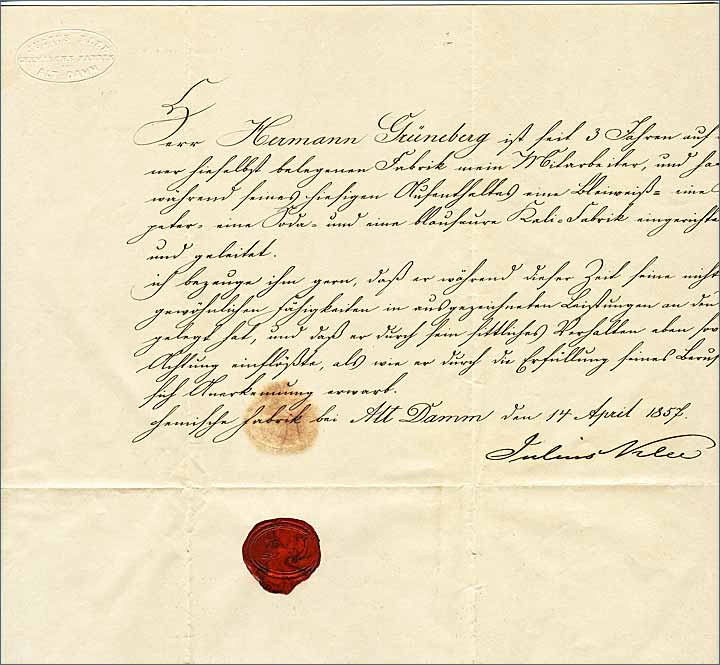 CHEMISCHE FABRIK
ALT DAMM
Herr Hermann Grüneberg ist seit 3 Jahren auf
ner hieselbst belegenen Fabrik mein Mitarbeiter, und ha
während seines hiesigen Aufenthaltes eine Bleiweiß- eine
peter- eine Soda- und eine blausaure Kali-Fabrik eingerichte
und geleitet.
ich bezeuge ihm gern, daß er während dieser Zeit seine nicht
gewöhnlichen Fähigkeiten in ausgezeichneten Leistungen an den
gelegt hat, und daß er durch sein sittliches Verhalten eben so
Achtung einflößte, als wie er durch die Erfüllung seines Beruf
sich Anerkennung erwarb.
chemische Fabrik bei Alt Damm den 14 April 1857.
Julius